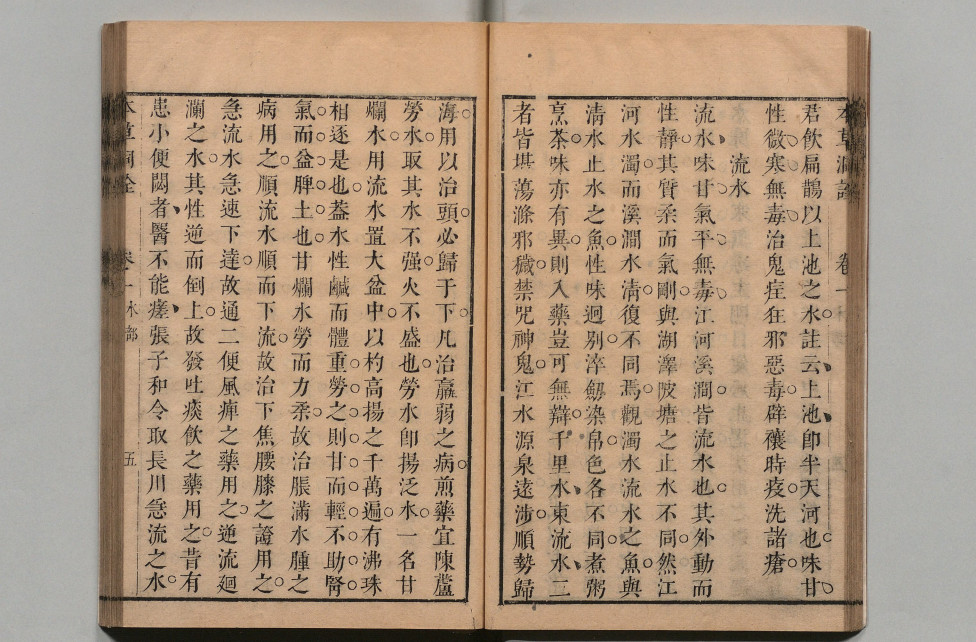 君飲扁鵲以上池之水註云上池卽半天河也味甘
性微寒無毒治鬼疰狂邪惡毒辟禳時疫洗諸瘡
流水
流水味甘氣平無毒江河溪澗皆流水也其外動而
性靜其質柔而氣剛與湖澤陂塘之止水不同然江
河水濁而溪澗水清復不同焉觀濁水流水之魚與
清水止水之魚性味迥别淬劒染帛色各不同煮粥
烹茶味亦有異則入藥豈可無辯千里水東流水二
者皆堪蕩滌邪穢禁咒神鬼江水源泉遠涉順勢歸
海用以治頭必歸于下凡治羸弱之病煎藥宜陳蘆
勞水取其水不强火不盛也勞水卽揚泛水一名甘
爛水用流水置大盆中以杓高揚之千萬遍有沸珠
相逐是也葢水性鹹而體重勞之則甘而輕不助腎
氣而益脾土也甘爛水勞而力柔故治脹滿水腫之
病用之順流水順而下流故治下焦腰膝之證用之
急流水急速下達故通二便風痺之藥用之逆流廻
瀾之水其性逆而倒上故發吐痰飲之藥用之昔有
患小便閟者醫不能瘥張子和令取長川急流之水
卷一 水部
五